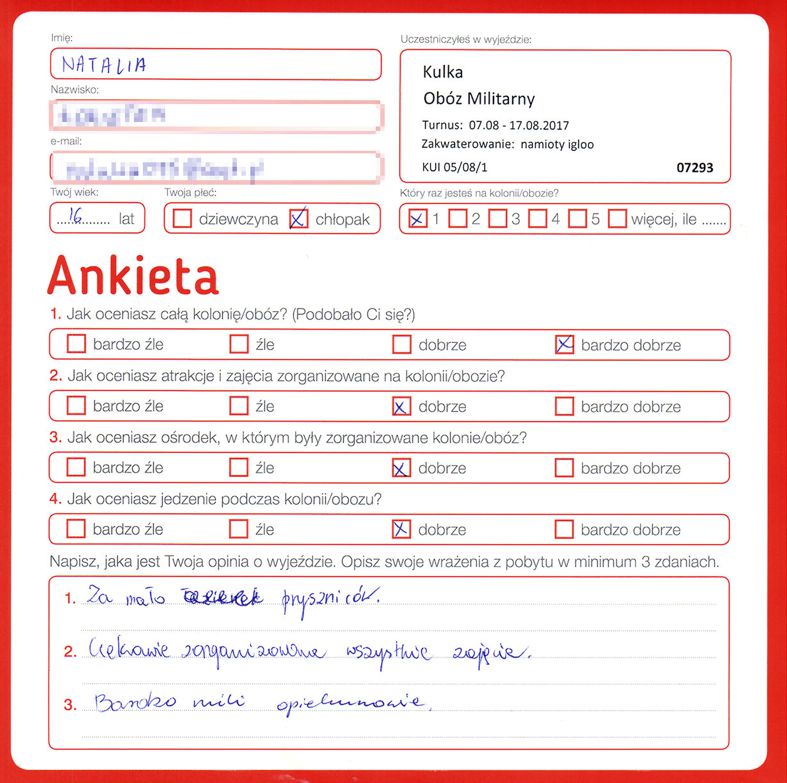 Imię:
NATALIA
Nazwisko:
e-mail:
Twój wiek:
16 lat
Twoja płeć:
dziewczyna chłopak
Uczestniczyłeś w wyjeździe:
Kulka
Obóz Militarny
Turnus: 07.08 - 17.08.2017
Zakwaterowanie: namioty igloo
KUI 05/08/1 07293
Który raz jesteś na kolonii/obozie?
1 2 3 4 5 więcej, ile .......
Ankieta
1. Jak oceniasz całą kolonię/obóz? (Podobało Ci się?)
bardzo źle źle dobrze bardzo dobrze
2. Jak oceniasz atrakcje i zajęcia zorganizowane na kolonii/obozie?
bardzo źle źle dobrze bardzo dobrze
3. Jak oceniasz ośrodek, w którym były zorganizowane kolonie/obóz?
bardzo źle źle dobrze bardzo dobrze
4. Jak oceniasz jedzenie podczas kolonii/obozu?
bardzo źle źle dobrze bardzo dobrze
Napisz, jaka jest Twoja opinia o wyjeździe. Opisz swoje wrażenia z pobytu w minimum 3 zdaniach.
1. Za mało pryszniców.
2. Ciekawie zorganizowane wszystkie zajęcia.
3. Bardzo mili opiekunowie.